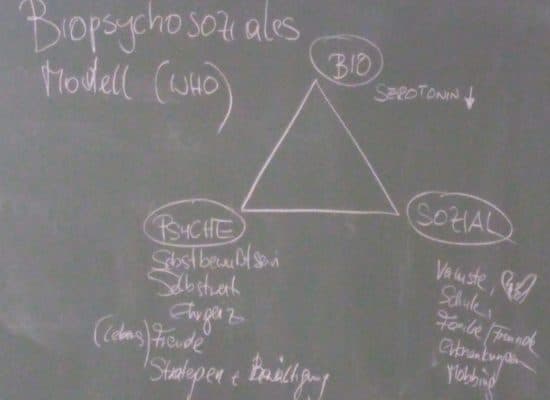 Biopsychosoziales
Modell (WHO)
BIO
SEROTONIN ↓
PSYCHE
Selbstbewußtsein
Selbstwert
Ehrgeiz
(Lebens) Freude
Strategien + Bewältigung
SOZIAL
Verluste,
Schule,
Familie / Freunde
Erkrankungen
Mobbing